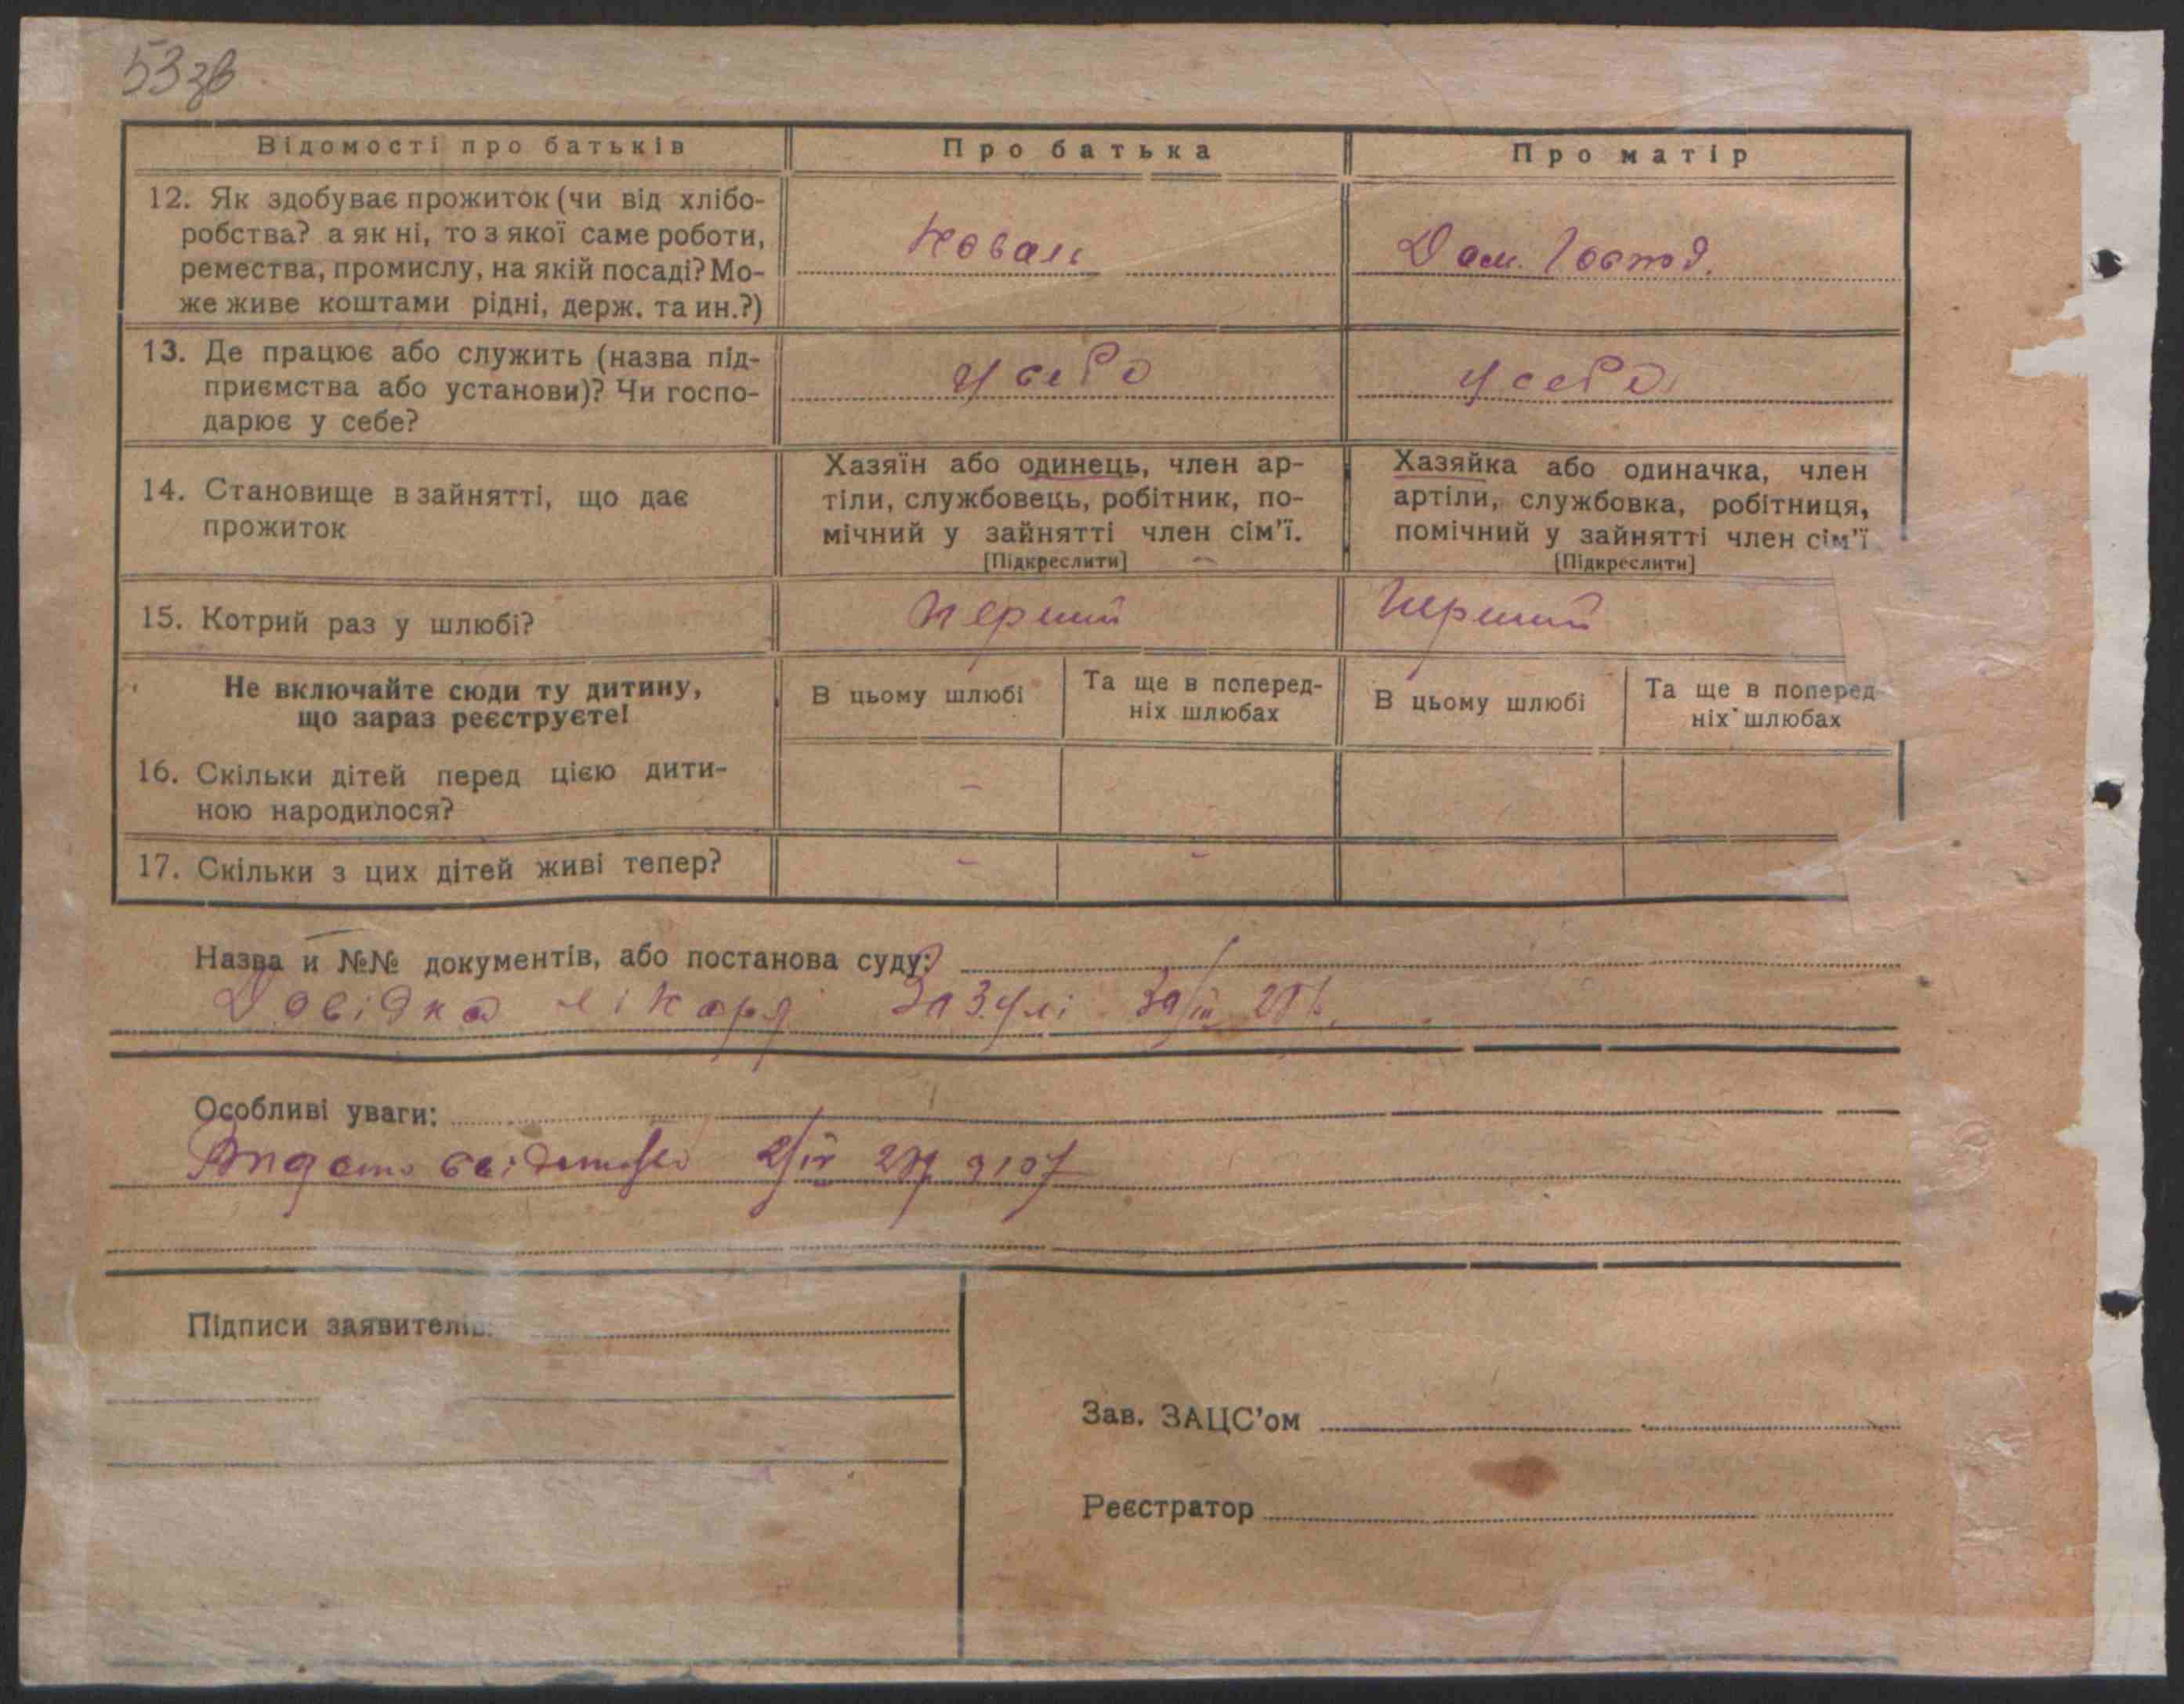 53 зв
Відомості про батьків
Про батька
Про матір
12. Як здобуває прожиток (чи від хлібо-
робства? а як ні, то з якої саме роботи,
ремества, промислу, на якій посаді? Мо-
же живе коштами рідні, держ. та ин.?)
Коваль
Дом. Господ.
13. Де працює або служить (назва під-
приємства або установи)? Чи госпо-
дарює у себе?
у себе
у себе
14. Становище в зайнятті, що дає
прожиток
Хазяїн або одинець, член ар-
тіли, службовець, робітник, по-
мічний у зайнятті член сім'ї.
[Підкреслити]
Хазяйка або одиначка, член
артіли, службовка, робітниця,
помічний у зайнятті член сім'ї
[Підкреслити]
15. Котрий раз у шлюбі?
Перший
Перший
Не включайте сюди ту дитину,
що зараз реєструєте!
В цьому шлюбі
Та ще в поперед-
ніх шлюбах
В цьому шлюбі
Та ще в поперед-
ніх шлюбах
16. Скільки дітей перед цією дити-
ною народилося?
-
17. Скільки з цих дітей живі тепер?
-
-
Назва и №№ документів, або постанова суду:
Довідка лікаря
Особливі уваги:
Видано свідотство
Підписи заявителів:
Зав. ЗАЦС'ом
Реєстратор